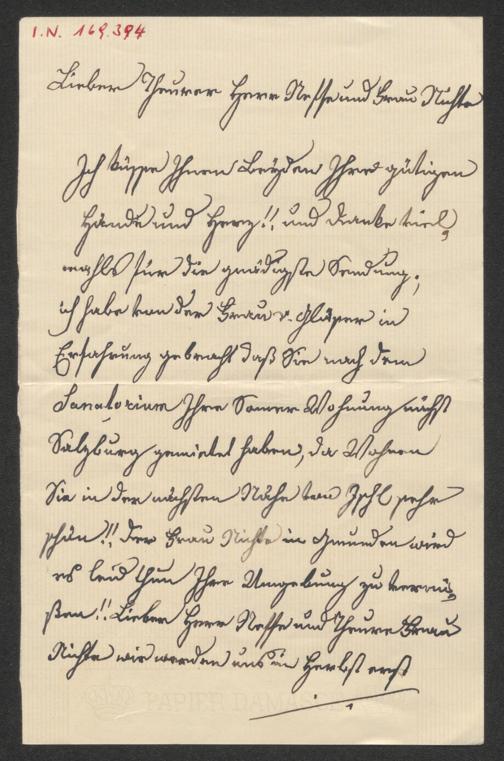 I.N. 169.394
Lieber Theurer Herr Neffe und Frau Nichte
Ich küsse Ihnen Beyden Ihre gütigen
Hände und Herz!! und danke viel,
mahls für die gnädigste Sendung,
ich habe von der Frau v. Glaser in
Erfahrung gebracht daß Sie nach dem
Sanatorium Ihre Somer Wohnung nächst
Salzburg gemietet haben, da Wohnen
Sie in der nächsten Nähe von Ischl sehr
schön!! der Frau Nichte in Gmunden wird
es leid thun Ihre Umgebung zu vermi,
ßen!! Lieber Herr Neffe und Theure Frau
Nichte wir werden uns in Herbst erst
PAPIER DAMAS